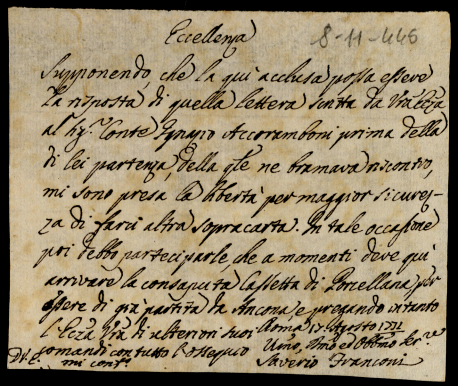 Eccellenza
8-11-446
Supponendo, che la quì acclusa possa essere
la risposta di quella lettera scritta da Vra Ecza
al Sig.r Conte Ignazio Accoramboni prima della
di lei partenza, della qle ne bramava riscontro,
mi sono presa la libertà per maggior sicurez-
za di farci altra sopracarta. In tale occasione
poi debbo parteciparle, che a momenti deve quì
arrivare la consaputa Cassetta di Porcellana, per
essere di già partita da Ancona, e pregando intanto
l'Ecza Vra di ulteriori suoi
comandi con tutto l'ossequio
mi conf.o
Roma 17 Agosto 1771
Umo, Dmo ed Obbmo Ser.re
Saverio Franconi